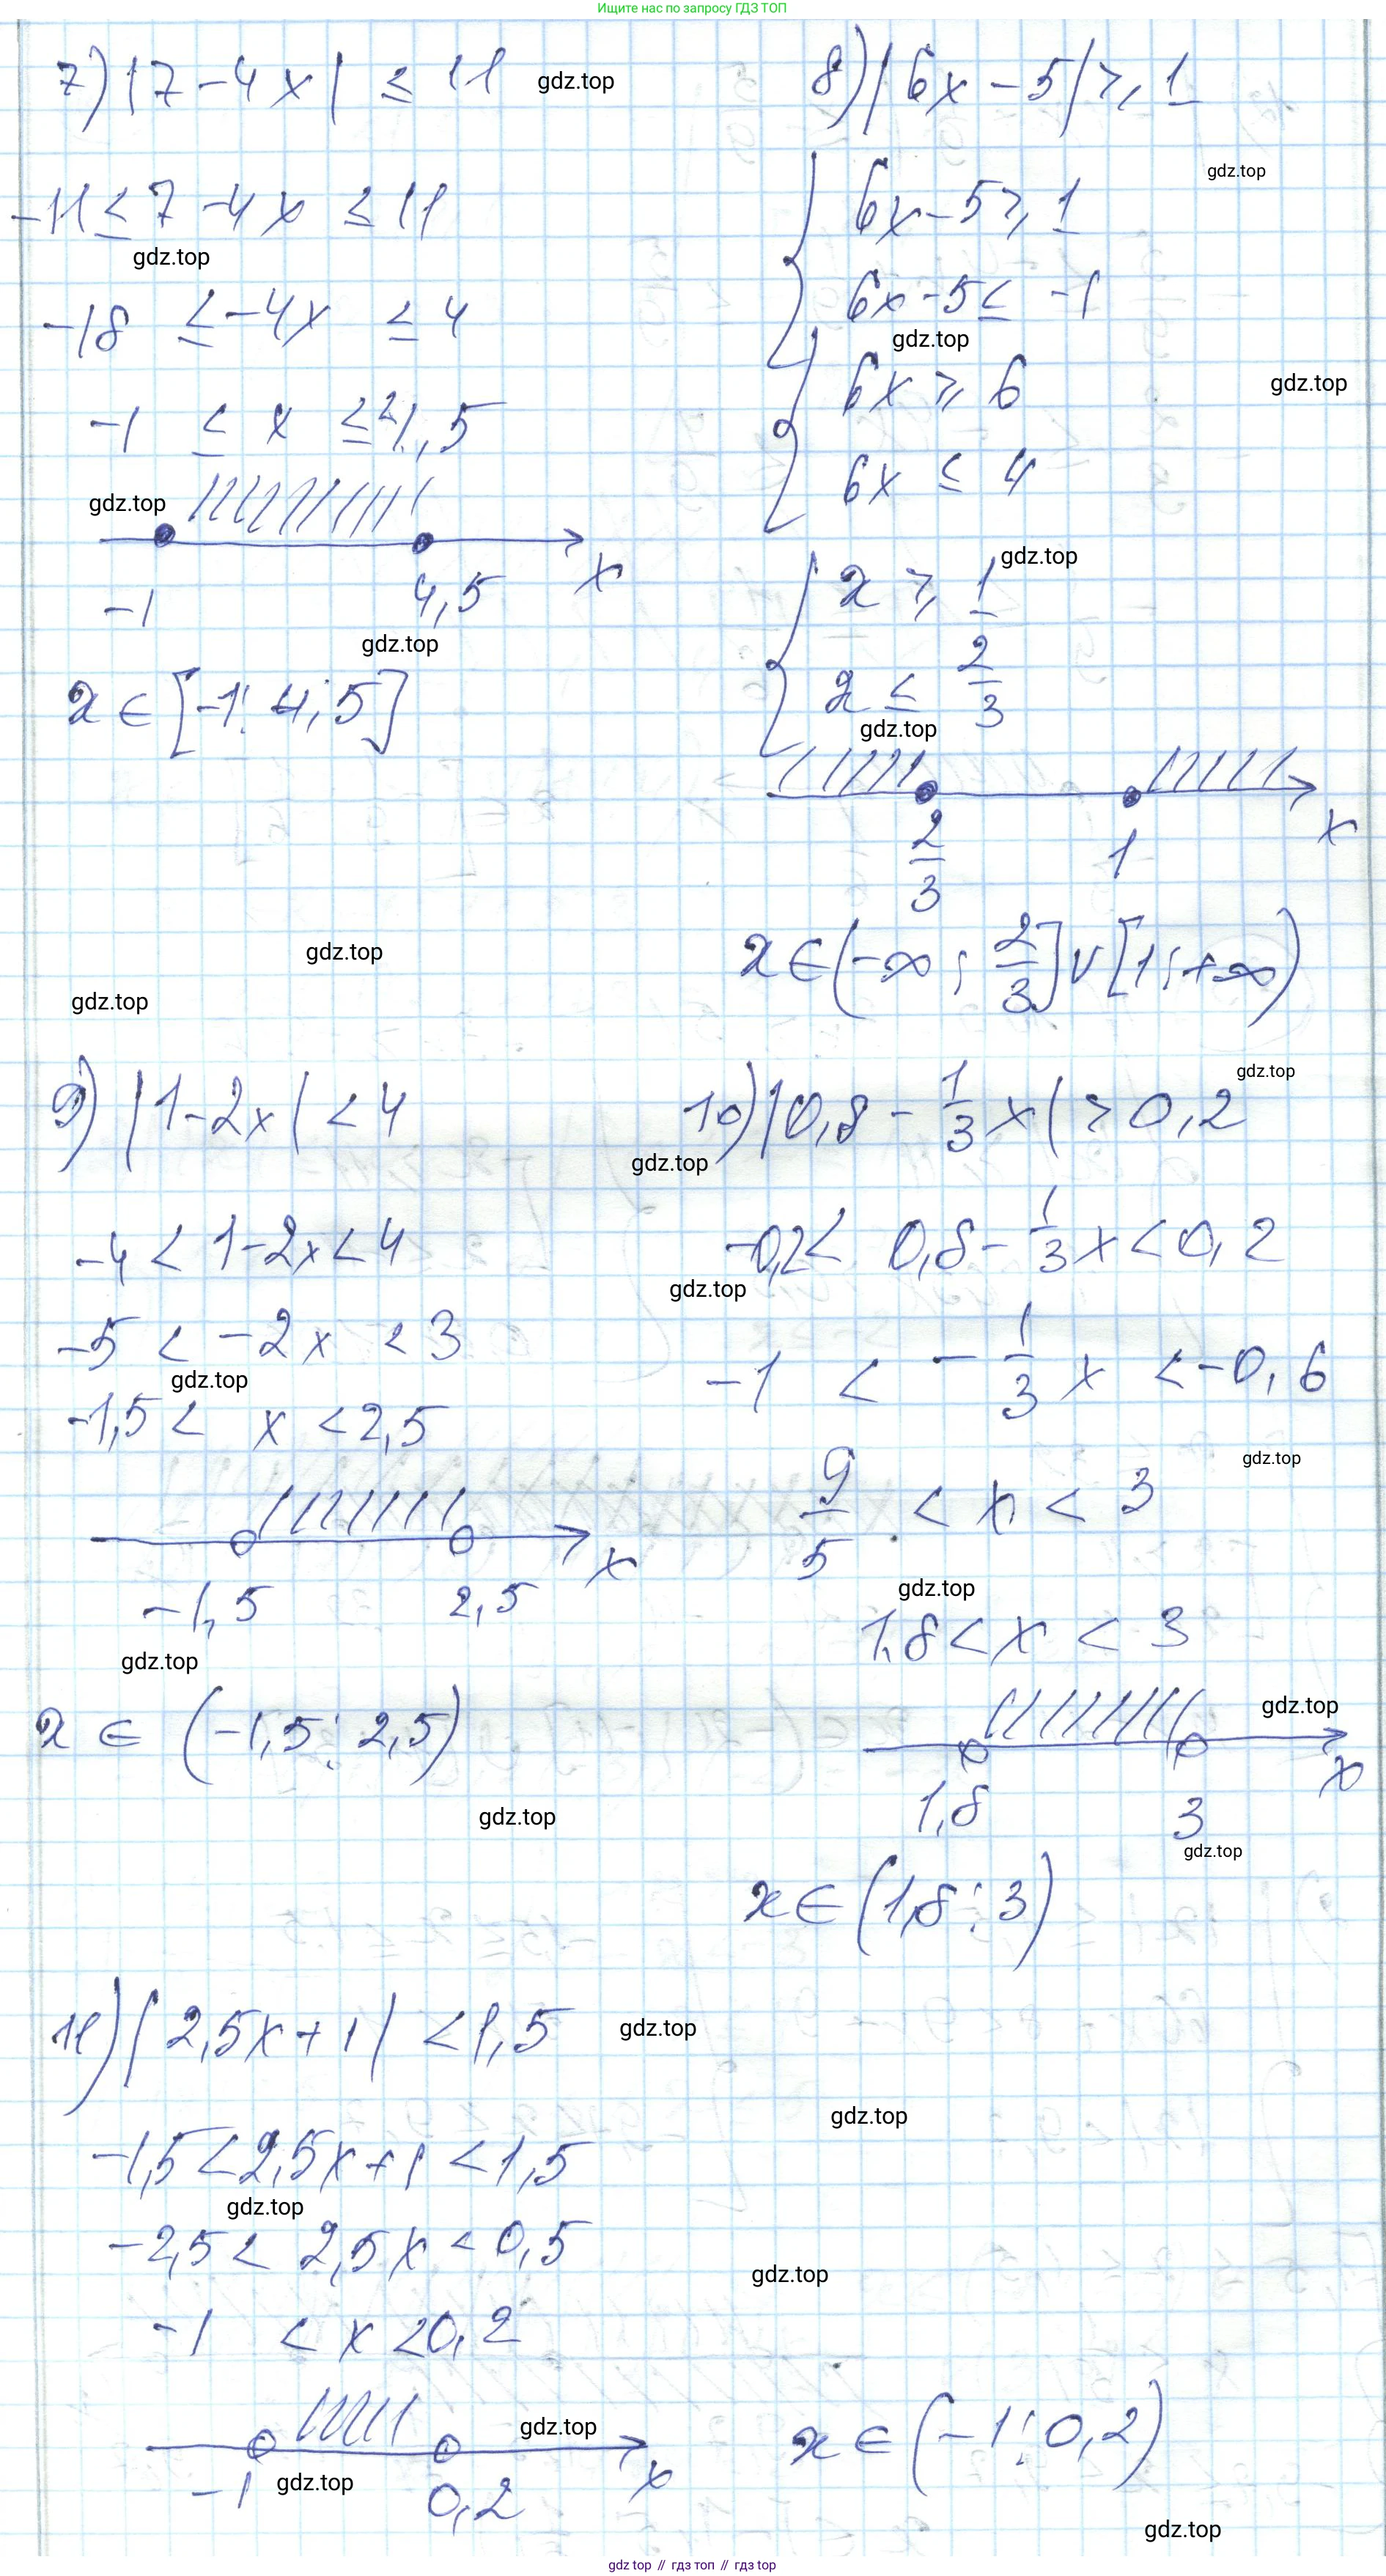 Ищите нас по запросу ГДЗ ТОП
7) |7 - 4x| ≤ 11
gdz.top
-11 ≤ 7 - 4x ≤ 11
gdz.top
-18 ≤ -4x ≤ 4
-1 ≤ x ≤ 4,5
gdz.top
-1 4,5 x
gdz.top
x ∈ [-1; 4,5]
gdz.top
gdz.top
8) |6x - 5| ≥ 1
gdz.top
6x - 5 ≥ 1
6x - 5 ≤ -1
gdz.top
6x ≥ 6
gdz.top
6x ≤ 4
gdz.top
x ≥ 1
x ≤ 2/3
gdz.top
2/3 1 x
x ∈ (-∞; 2/3] ∪ [1; +∞)
9) |1 - 2x| < 4
-4 < 1 - 2x < 4
-5 < -2x < 3
gdz.top
-1,5 < x < 2,5
-1,5 2,5 x
gdz.top
x ∈ (-1,5; 2,5)
gdz.top
gdz.top
10) |0,8 - 1/3 x| > 0,2
gdz.top
-0,2 < 0,8 - 1/3 x < 0,2
gdz.top
-1 < -1/3 x < -0,6
gdz.top
9/5 < x < 3
gdz.top
1,8 < x < 3
gdz.top
1,8 3 x
gdz.top
x ∈ (1,8; 3)
11) |2,5x + 1| < 1,5
gdz.top
gdz.top
-1,5 < 2,5x + 1 < 1,5
gdz.top
-2,5 < 2,5x < 0,5
gdz.top
-1 < x < 0,2
gdz.top
-1 0,2 x
gdz.top
x ∈ (-1; 0,2)
gdz.top
gdz.top // гдз топ // гдз top